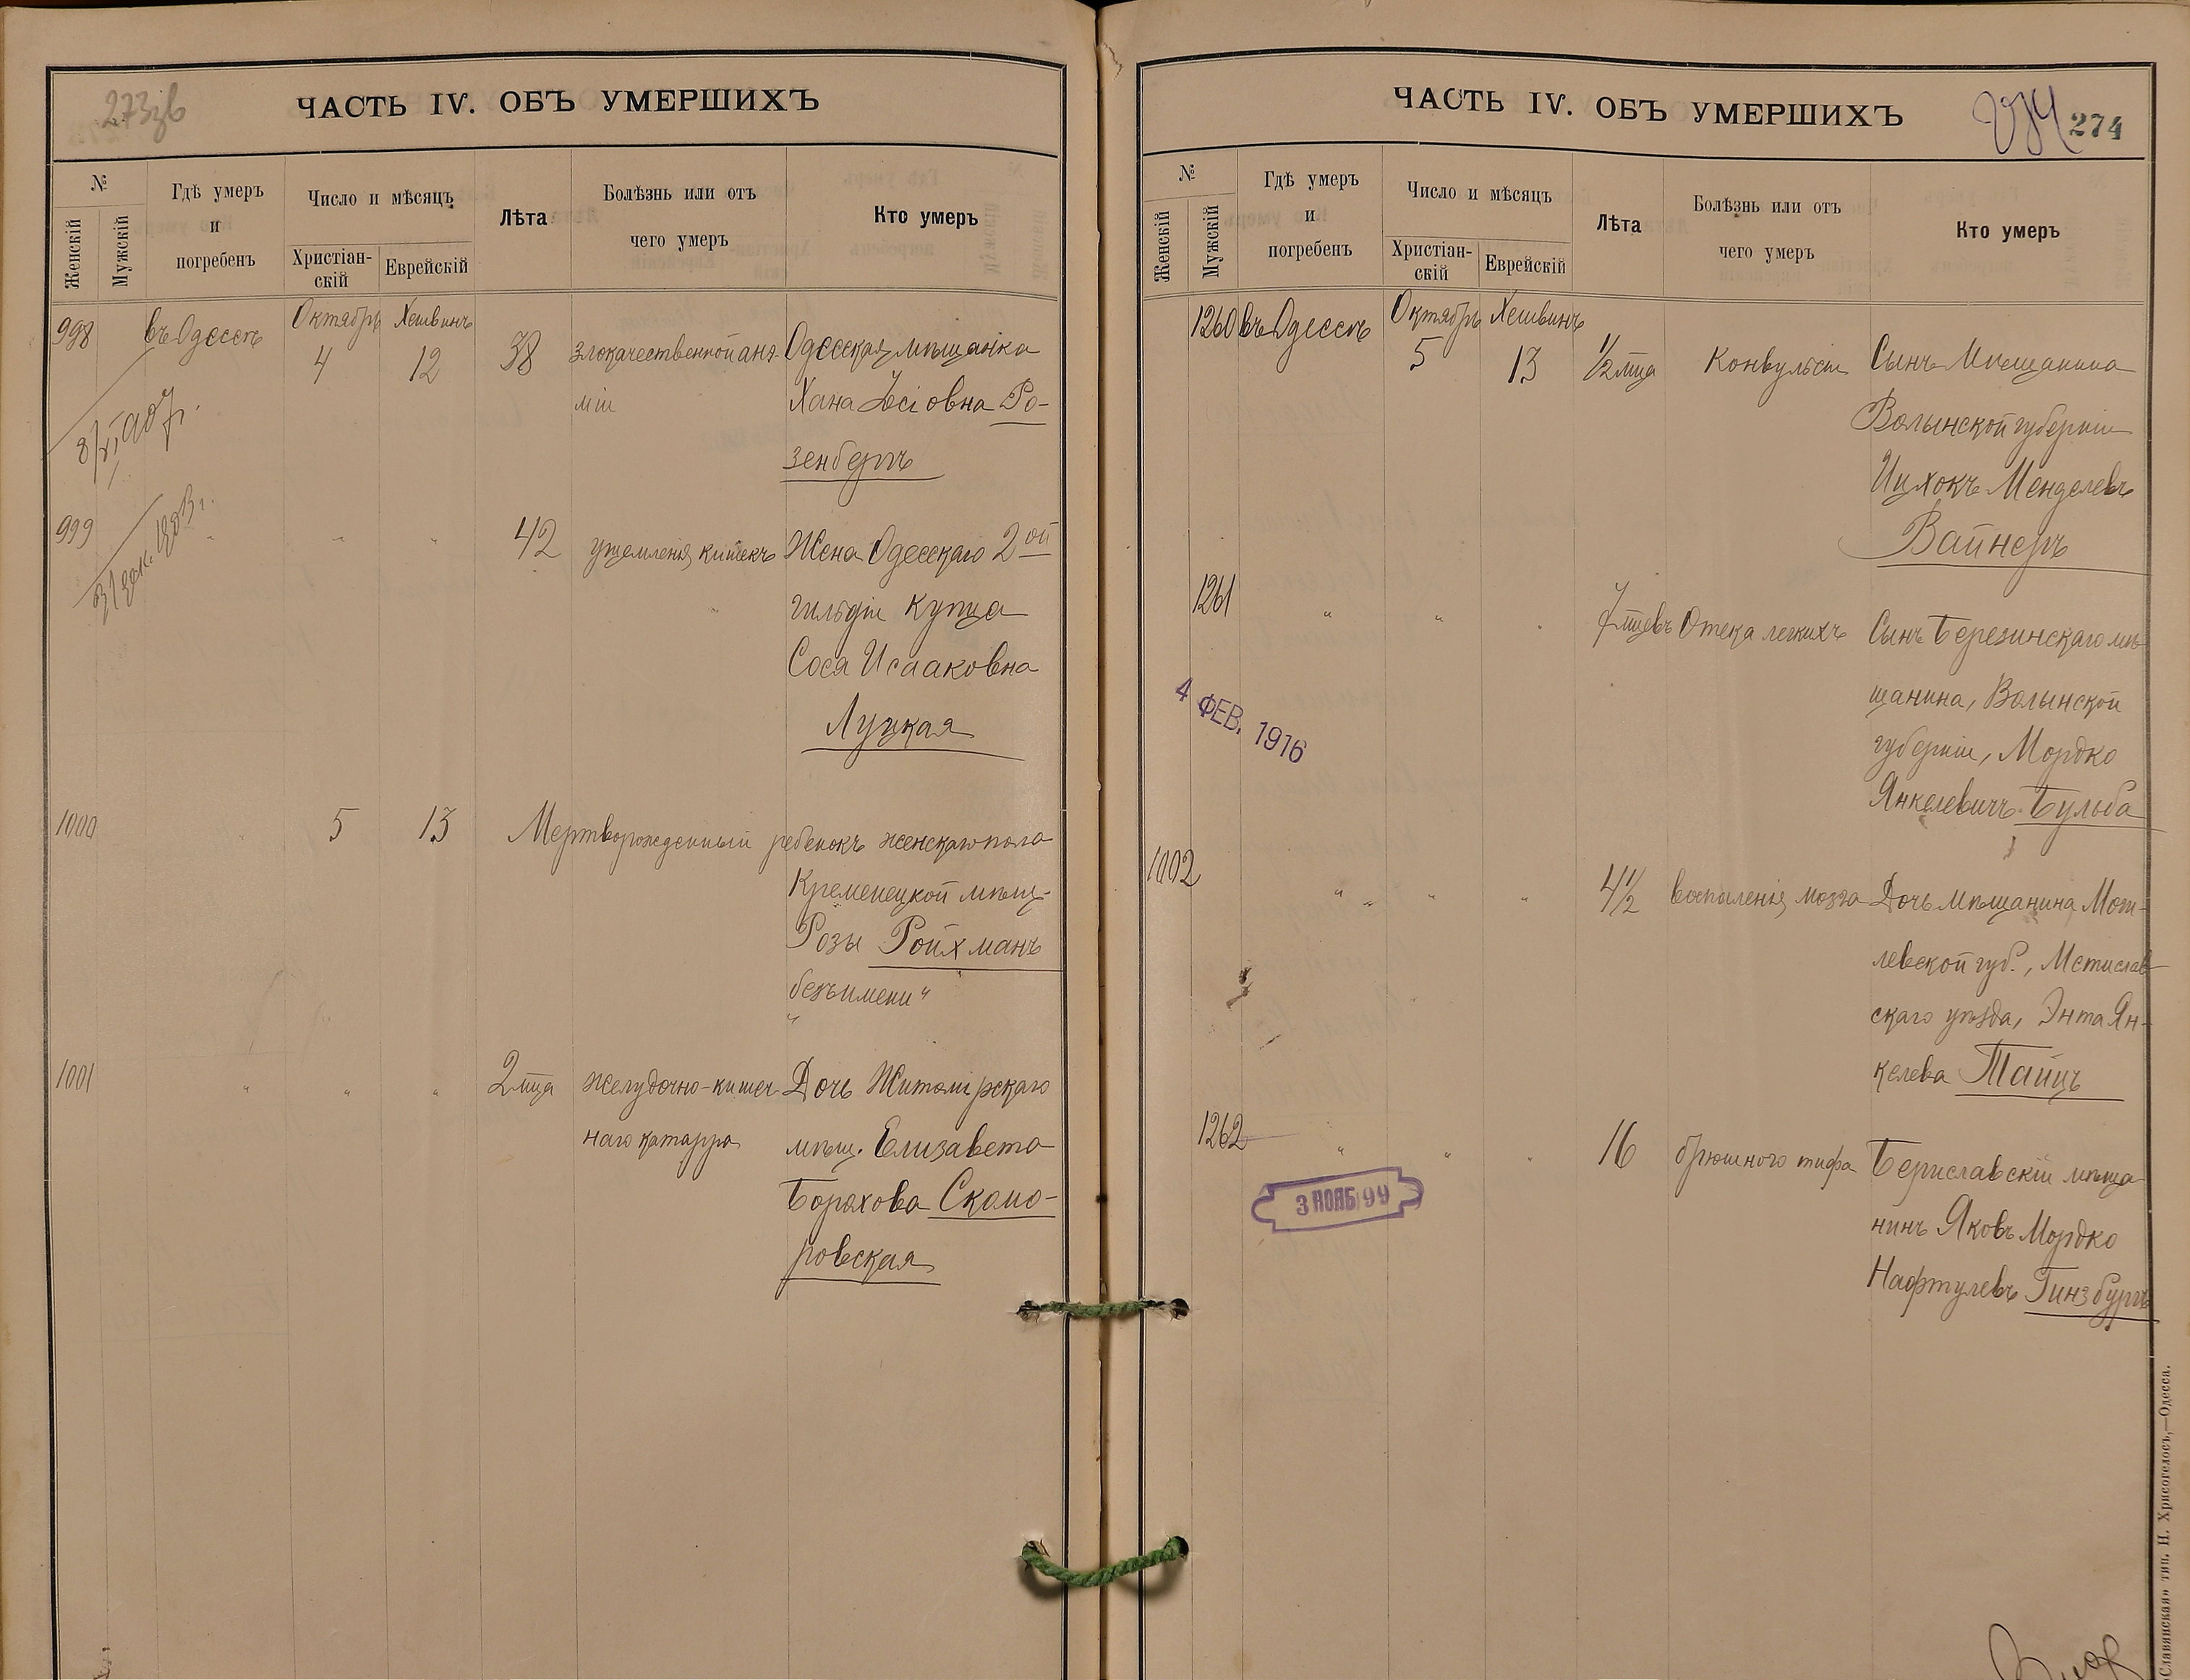 273об
ЧАСТЬ IV. ОБЪ УМЕРШИХЪ
№
Женскій
Мужскій
Гдѣ умеръ
и
погребенъ
Число и мѣсяцъ
Христіан-
скій
Еврейскій
Лѣта
Болѣзнь или отъ
чего умеръ
Кто умеръ
998 въ Одессѣ Октябрь 4 Хешвинъ 12 38 злокачественной анэ- Одесская мѣщанка
міи Хана Іосіовна Ро-
зенбергъ
8/XI 907 г.
999 " " " 42 ущемленія кишекъ Жена Одесскаго 2ой
гильдіи купца
Сося Исааковна
Луцкая
31 дек. 1903 г.
1000 " 5 13 Мертворожденный ребенокъ женскаго пола
Кременецкой мѣщ.
Розы Ройхманъ
"безъ имени"
1001 " " " 2 мца желудочно-кишеч- Дочь Житомірскаго
наго катарра мѣщ. Елизавета
Борахова Скомо-
ровская
ЧАСТЬ IV. ОБЪ УМЕРШИХЪ
274
274
№
Женскій
Мужскій
Гдѣ умеръ
и
погребенъ
Число и мѣсяцъ
Христіан-
скій
Еврейскій
Лѣта
Болѣзнь или отъ
чего умеръ
Кто умеръ
1260 въ Одессѣ Октябрь 5 Хешвинъ 13 1/2 мца Конвульсіи Сынъ Мѣщанина
Волынской губерніи
Ицхокъ Менделевъ
Вайнеръ
1261 " " " 7 мцевъ Отека легкихъ Сынъ Березинскаго мѣ-
щанина, Волынской
губерніи, Мордко
Янкелевичъ Бульба
4 ФЕВ. 1916
1002 " " " 4 1/2 воспаленія мозга Дочь мѣщанина Моги-
левской губ., Мстислав-
скаго уѣзда, Энта Ян-
келева Тайцъ
1262 " " " 16 брюшного тифа Бериславскій мѣща-
нинъ Яковъ Мордко
Нафтулевъ Гинзбургъ
3 НОЯБ 99
«Славянская» тип. Н. Хрисогелосъ,—Одесса.